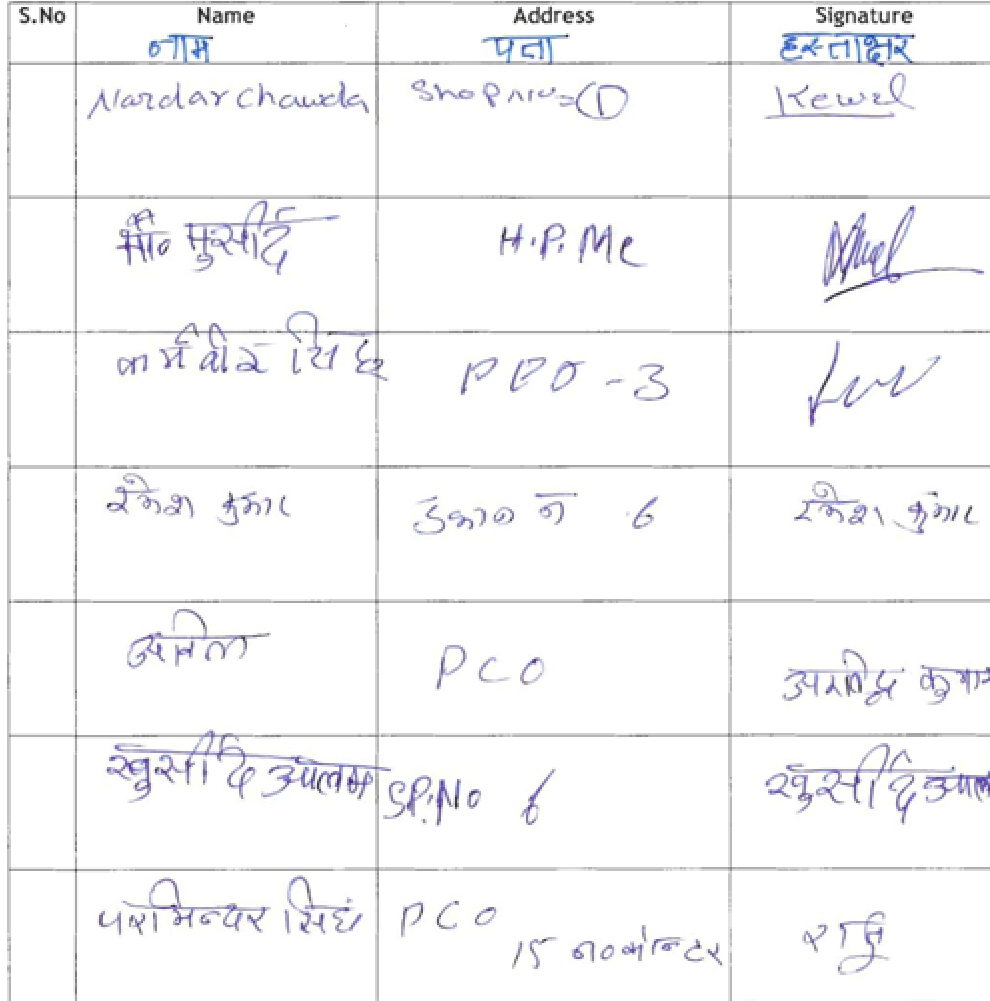 S.No Name Address Signature
नाम पता हस्ताक्षर
Nardar Chawda Shop no= 1 Kewel
मो॰ मुर्सीद H.P. Mc
कर्मवीर सिंह PCO -3
रमेश कुमार दुकान न 6 रमेश कुमार
PCO
अरविंद्र कुमार
खुर्सीद आलम SP.No 6 खुर्सीद आलम
परमिन्दर सिंह PCO
15 न० काऊन्टर राजु